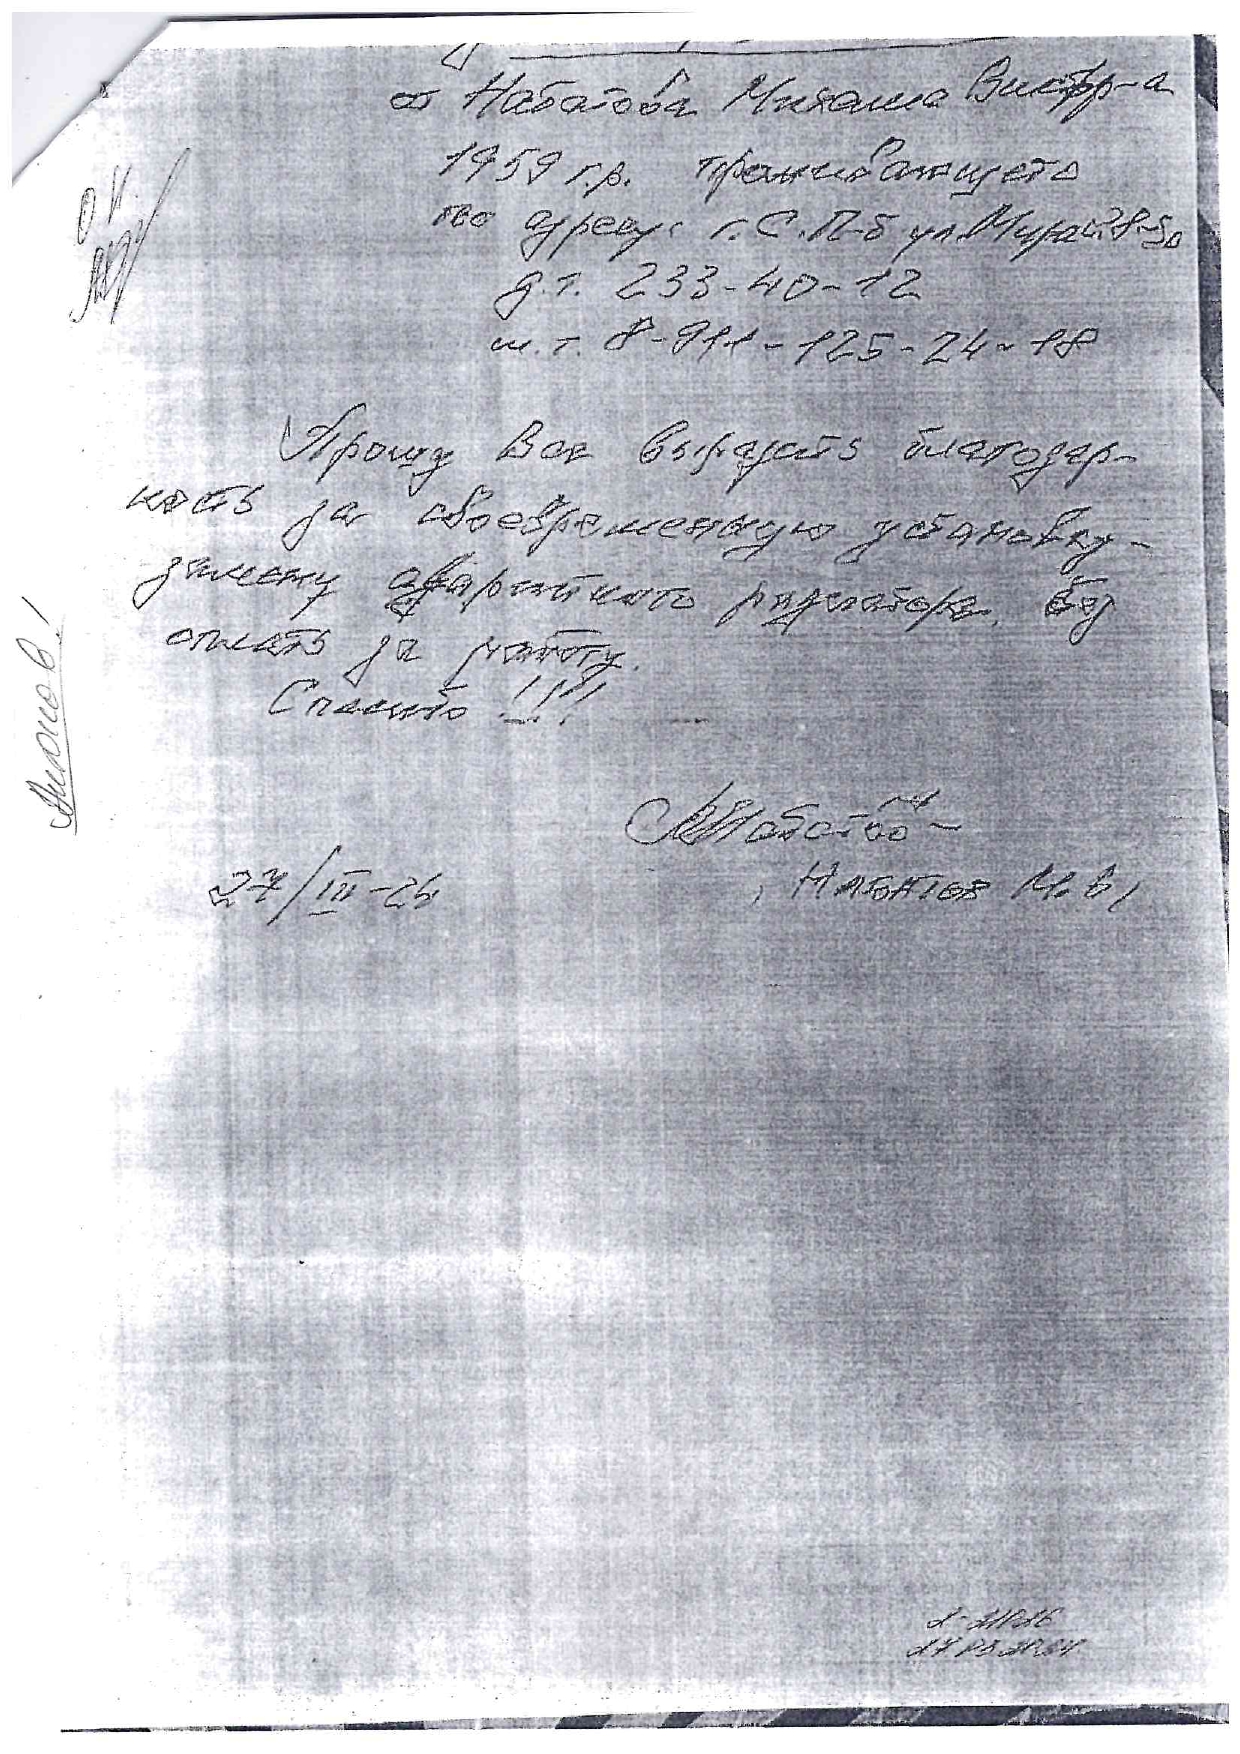 от Набатова Михаила Виктор-а
1959 г.р. проживающего
по адресу: г. С. П-б ул. Мира
д.т. 233-40-12
м.т. 8-911-125-24-18
Прошу Вас выразить благодар-
ность за своевременную установку-
замену аварийного радиатора. Без
оплаты за работу.
Спасибо !!!!
27/III-24
Набатов М.В.